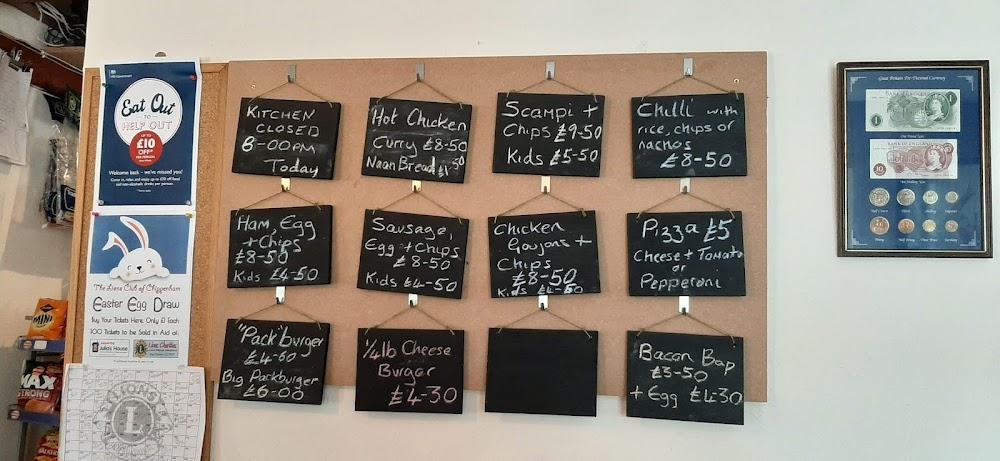 HM Government
Eat Out
TO
HELP OUT
UP TO
£10
OFF*
PER PERSON
Welcome back – we've missed you!
The Lions Club of Chippenham
Easter Egg Draw
Buy Your Tickets Here. Only £1 Each
100 Tickets to be Sold in Aid of:
Julia's House
LIONS
L
MINI
MAX
STRONG
KITCHEN
CLOSED
8-00PM
Today
Hot Chicken
Curry £8-50
Naan Bread
Scampi +
Chips £9-50
Kids £5-50
Chilli with
rice, chips or
nachos
£8-50
Ham, Egg
+ Chips
£8-50
Kids £4-50
Sausage,
Egg + Chips
£8-50
Kids £4-50
Chicken
Goujons +
Chips
£8-50
Kids
Pizza £5
Cheese + Tomato
or
Pepperoni
"Pack" burger
£4-60
Big Packburger
£6-00
1/4lb Cheese
Burger
£4-30
Bacon Bap
£3-50
+ Egg £4-30
Great Britain Pre-Decimal Currency
BANK OF ENGLAND